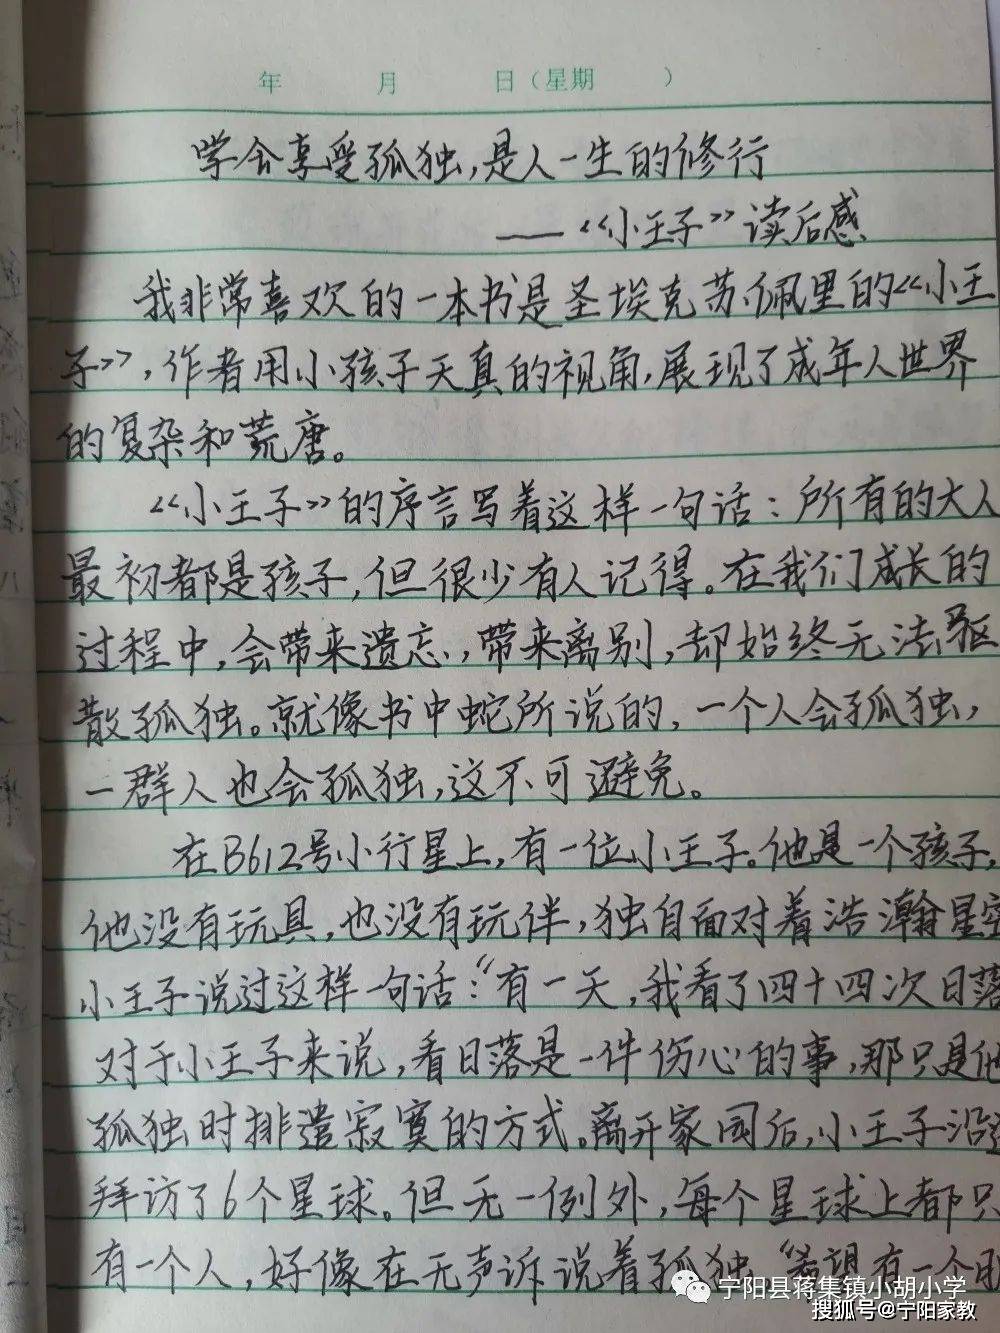 年 月 日（星期 ）
学会享受孤独,是人一生的修行
——《小王子》读后感
我非常喜欢的一本书是圣埃克苏佩里的《小王
子》,作者用小孩子天真的视角,展现了成年人世界
的复杂和荒唐。
《小王子》的序言写着这样一句话：所有的大人
最初都是孩子,但很少有人记得。在我们成长的
过程中,会带来遗忘,带来离别,却始终无法驱
散孤独。就像书中蛇所说的,一个人会孤独,
一群人也会孤独,这不可避免。
在B612号小行星上,有一位小王子。他是一个孩子,
他没有玩具,也没有玩伴,独自面对着浩瀚星空
小王子说过这样一句话："有一天,我看了四十四次日落
对于小王子来说,看日落是一件伤心的事,那只是他
孤独时排遣寂寞的方式。离开家园后,小王子沿途
拜访了6个星球。但无一例外,每个星球上都只
有一个人,好像在无声诉说着孤独 "希望有一个
宁阳县蒋集镇小胡小学
搜狐号@宁阳家教